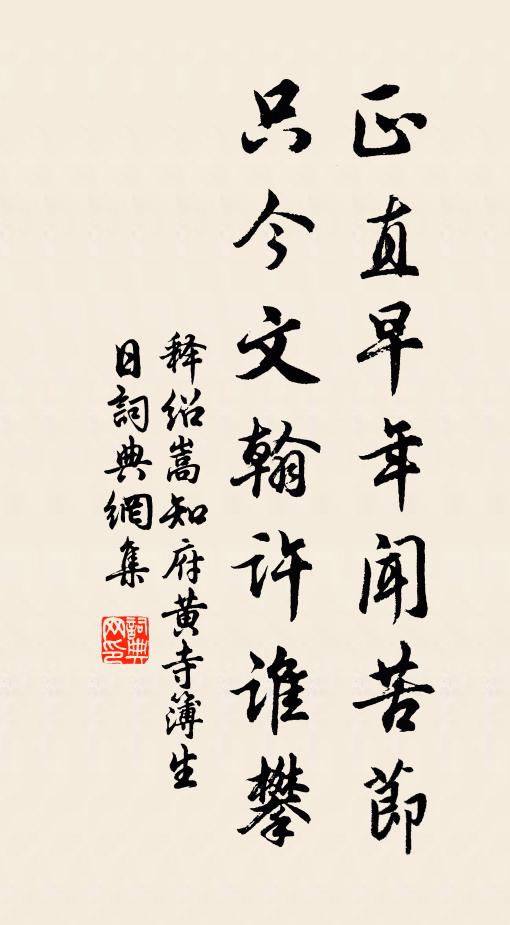 正直早年闻苦节
只今文翰许谁攀
释绍嵩知府黄寺簿生
日詞典網集
詞典网印